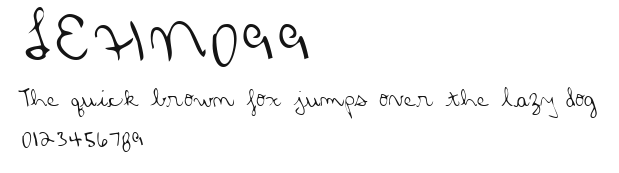 LEHN099
The quick brown fox jumps over the lazy dog
0123456789